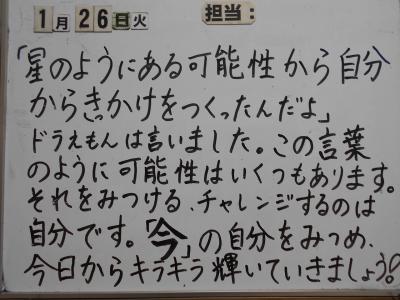 1月26日火 担当:
「星のようにある可能性から自分
からきっかけをつくったんだよ」
ドラえもんは言いました。この言葉
のように可能性はいくつもあります。
それをみつける、チャレンジするのは
自分です。「今」の自分をみつめ、
今日からキラキラ輝いていきましょう!